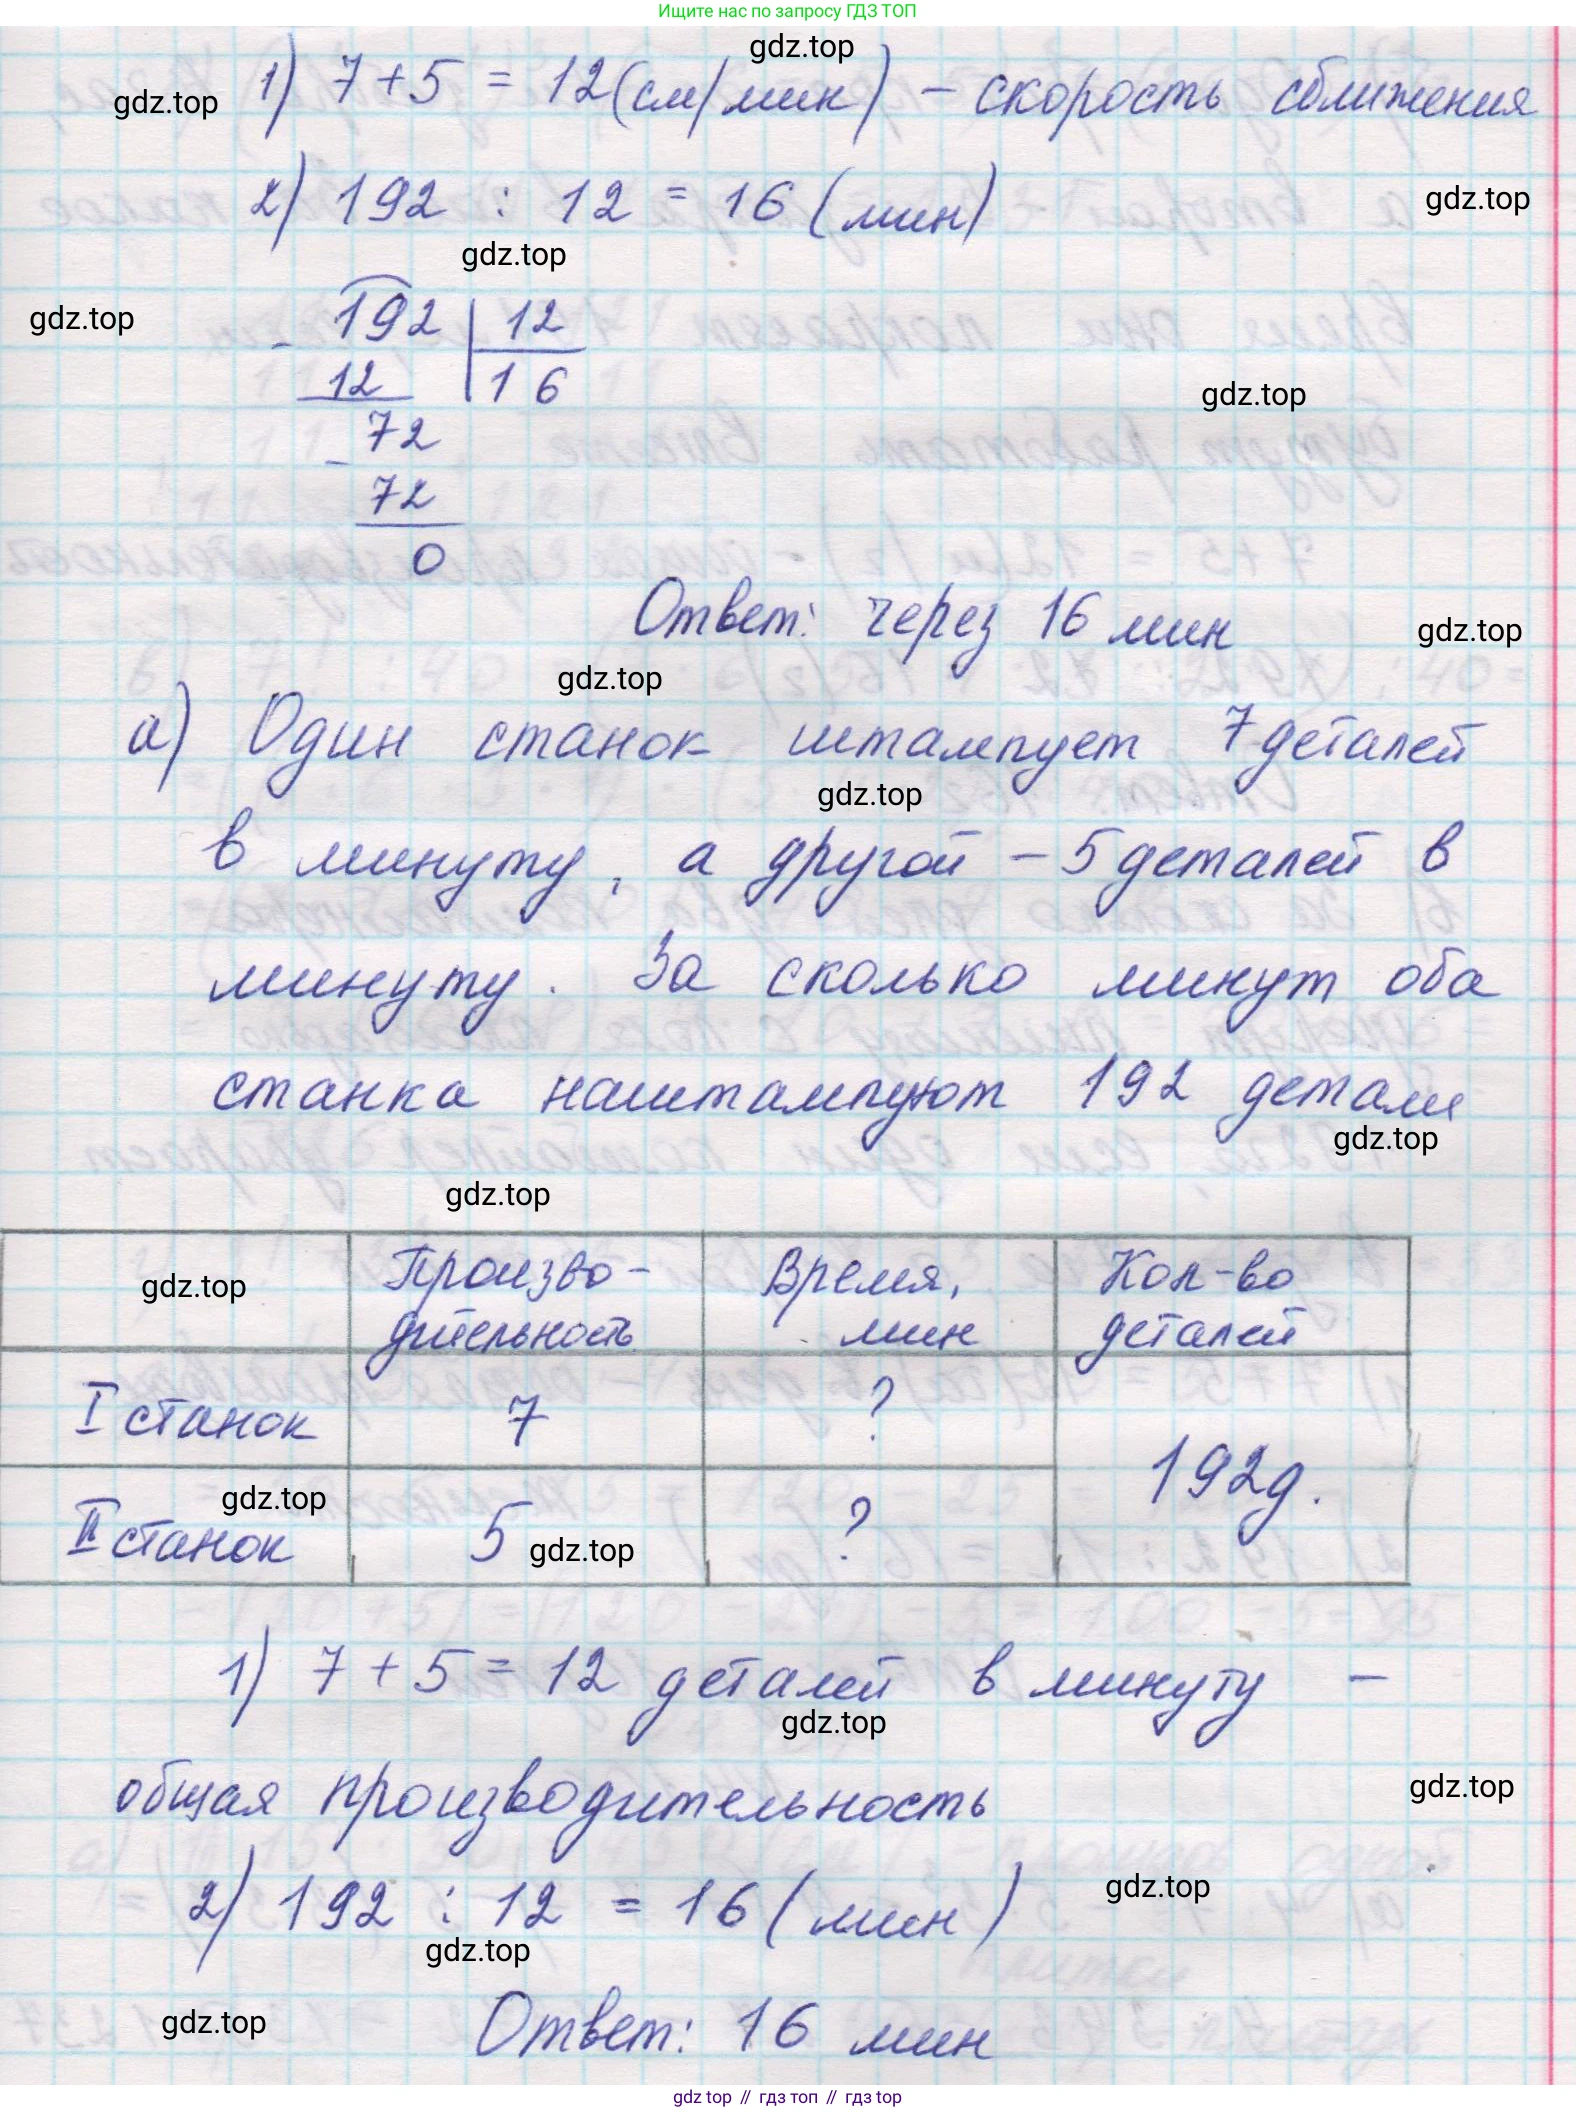 Ищите нас по запросу ГДЗ ТОП
gdz.top
gdz.top
1) 7 + 5 = 12 (см/мин) – скорость сближения
2) 192 : 12 = 16 (мин)
gdz.top
gdz.top
gdz.top
192 | 12
- 12 | 16
gdz.top
72
- 72
0
Ответ: через 16 мин
gdz.top
gdz.top
а) Один станок штампует 7 деталей
gdz.top
в минуту, а другой – 5 деталей в
минуту. За сколько минут оба
станка наштампуют 192 детали
gdz.top
gdz.top
gdz.top
Произво-
дительность
Время,
мин
Кол-во
деталей
I станок 7 ?
192д.
gdz.top
II станок 5 ?
gdz.top
1) 7 + 5 = 12 деталей в минуту –
gdz.top
общая производительность
gdz.top
2) 192 : 12 = 16 (мин)
gdz.top
gdz.top
gdz.top
Ответ: 16 мин
gdz.top // гдз топ // гдз top